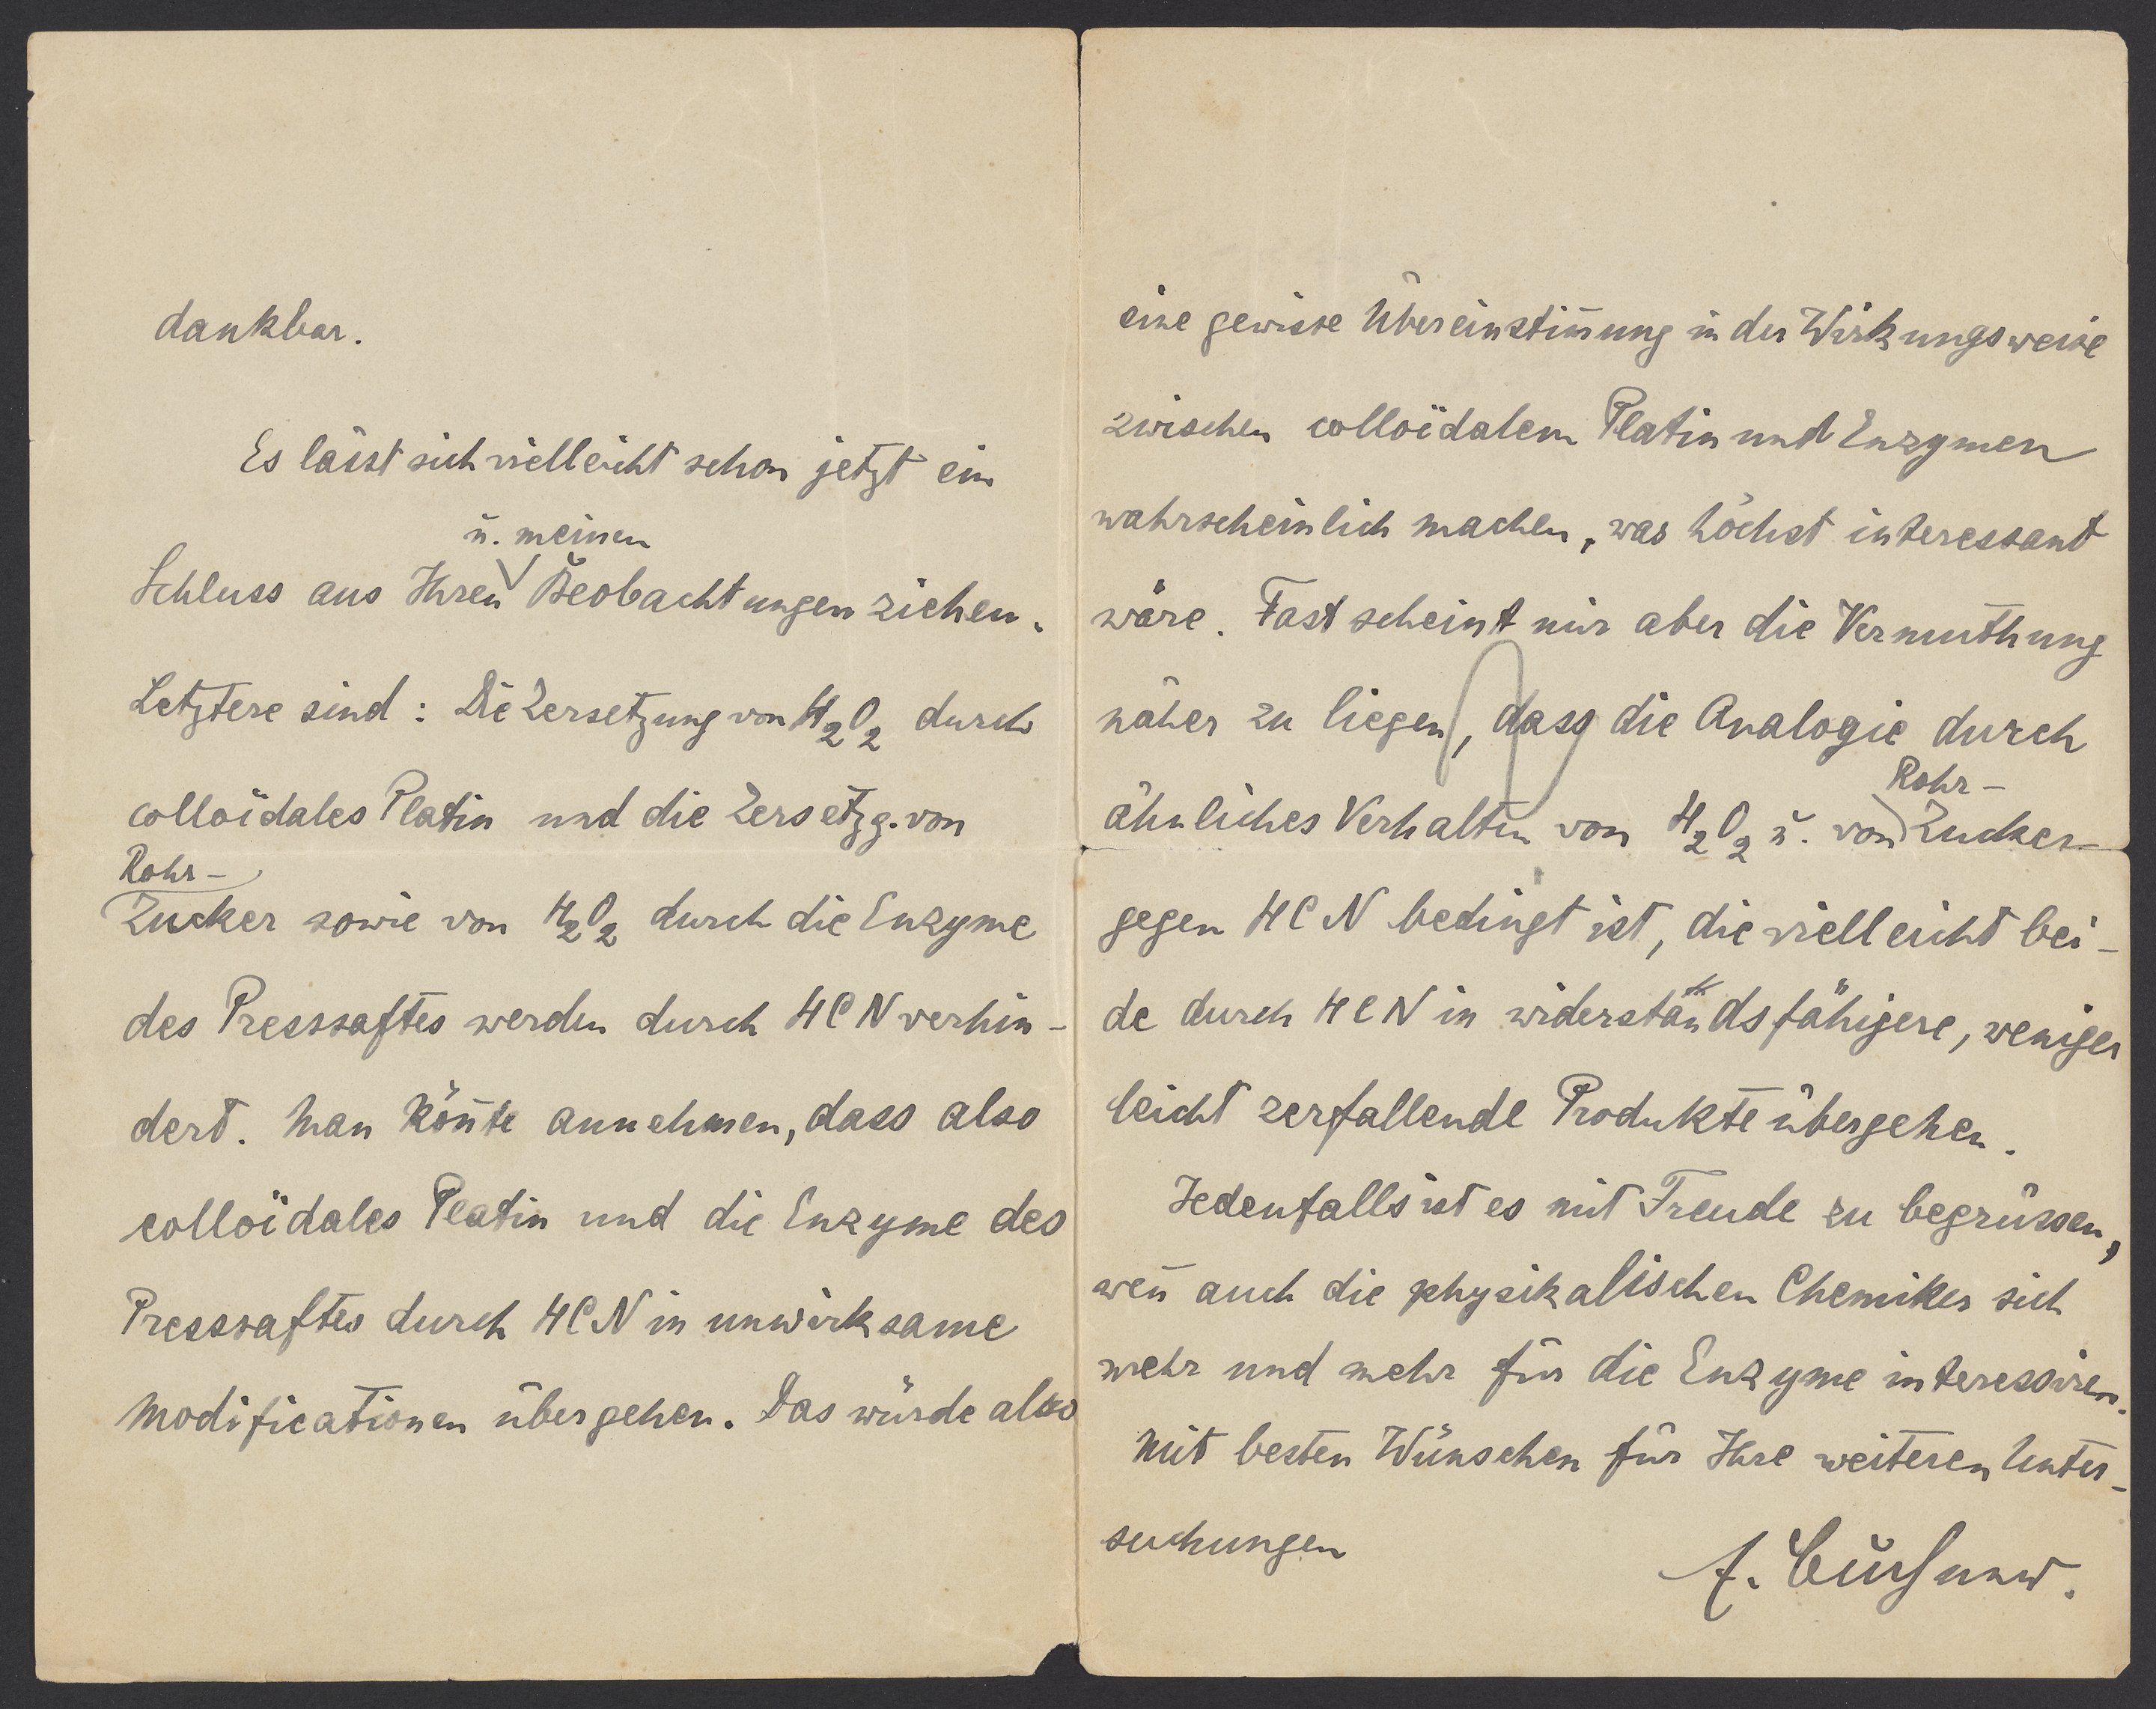 dankbar.
Es lässt sich vielleicht schon jetzt ein
u. meinen
Schluss aus Ihren Beobachtungen ziehen.
Letztere sind: Die Zersetzung von H₂O₂ durch
colloïdales Platin und die Zersetzg. von
Rohr-
Zucker sowie von H₂O₂ durch die Enzyme
des Presssaftes werden durch HCN verhin-
dert. Man kön̄te annehmen, dass also
colloïdales Platin und die Enzyme des
Presssaftes durch HCN in unwirksame
Modificationen übergehen. Das würde also
eine gewisse Übereinstim̄ung in der Wirkungsweise
zwischen colloïdalem Platin und Enzymen
wahrscheinlich machen, was höchst interessant
wäre. Fast scheint mir aber die Vermuthung
näher zu liegen, dass die Analogie durch
Rohr-
ähnliches Verhalten von H₂O₂ u. von Zucker
gegen HCN bedingt ist, die vielleicht bei-
de durch HCN in widerstandsfähigere, weniger
leicht zerfallende Produkte übergehen.
Jedenfalls ist es mit Freude zu begrüssen,
wen̄ auch die physikalischen Chemiker sich
mehr und mehr für die Enzyme interessiren.
Mit besten Wünschen für Ihre weiteren Unter-
suchungen
E. Buchner.